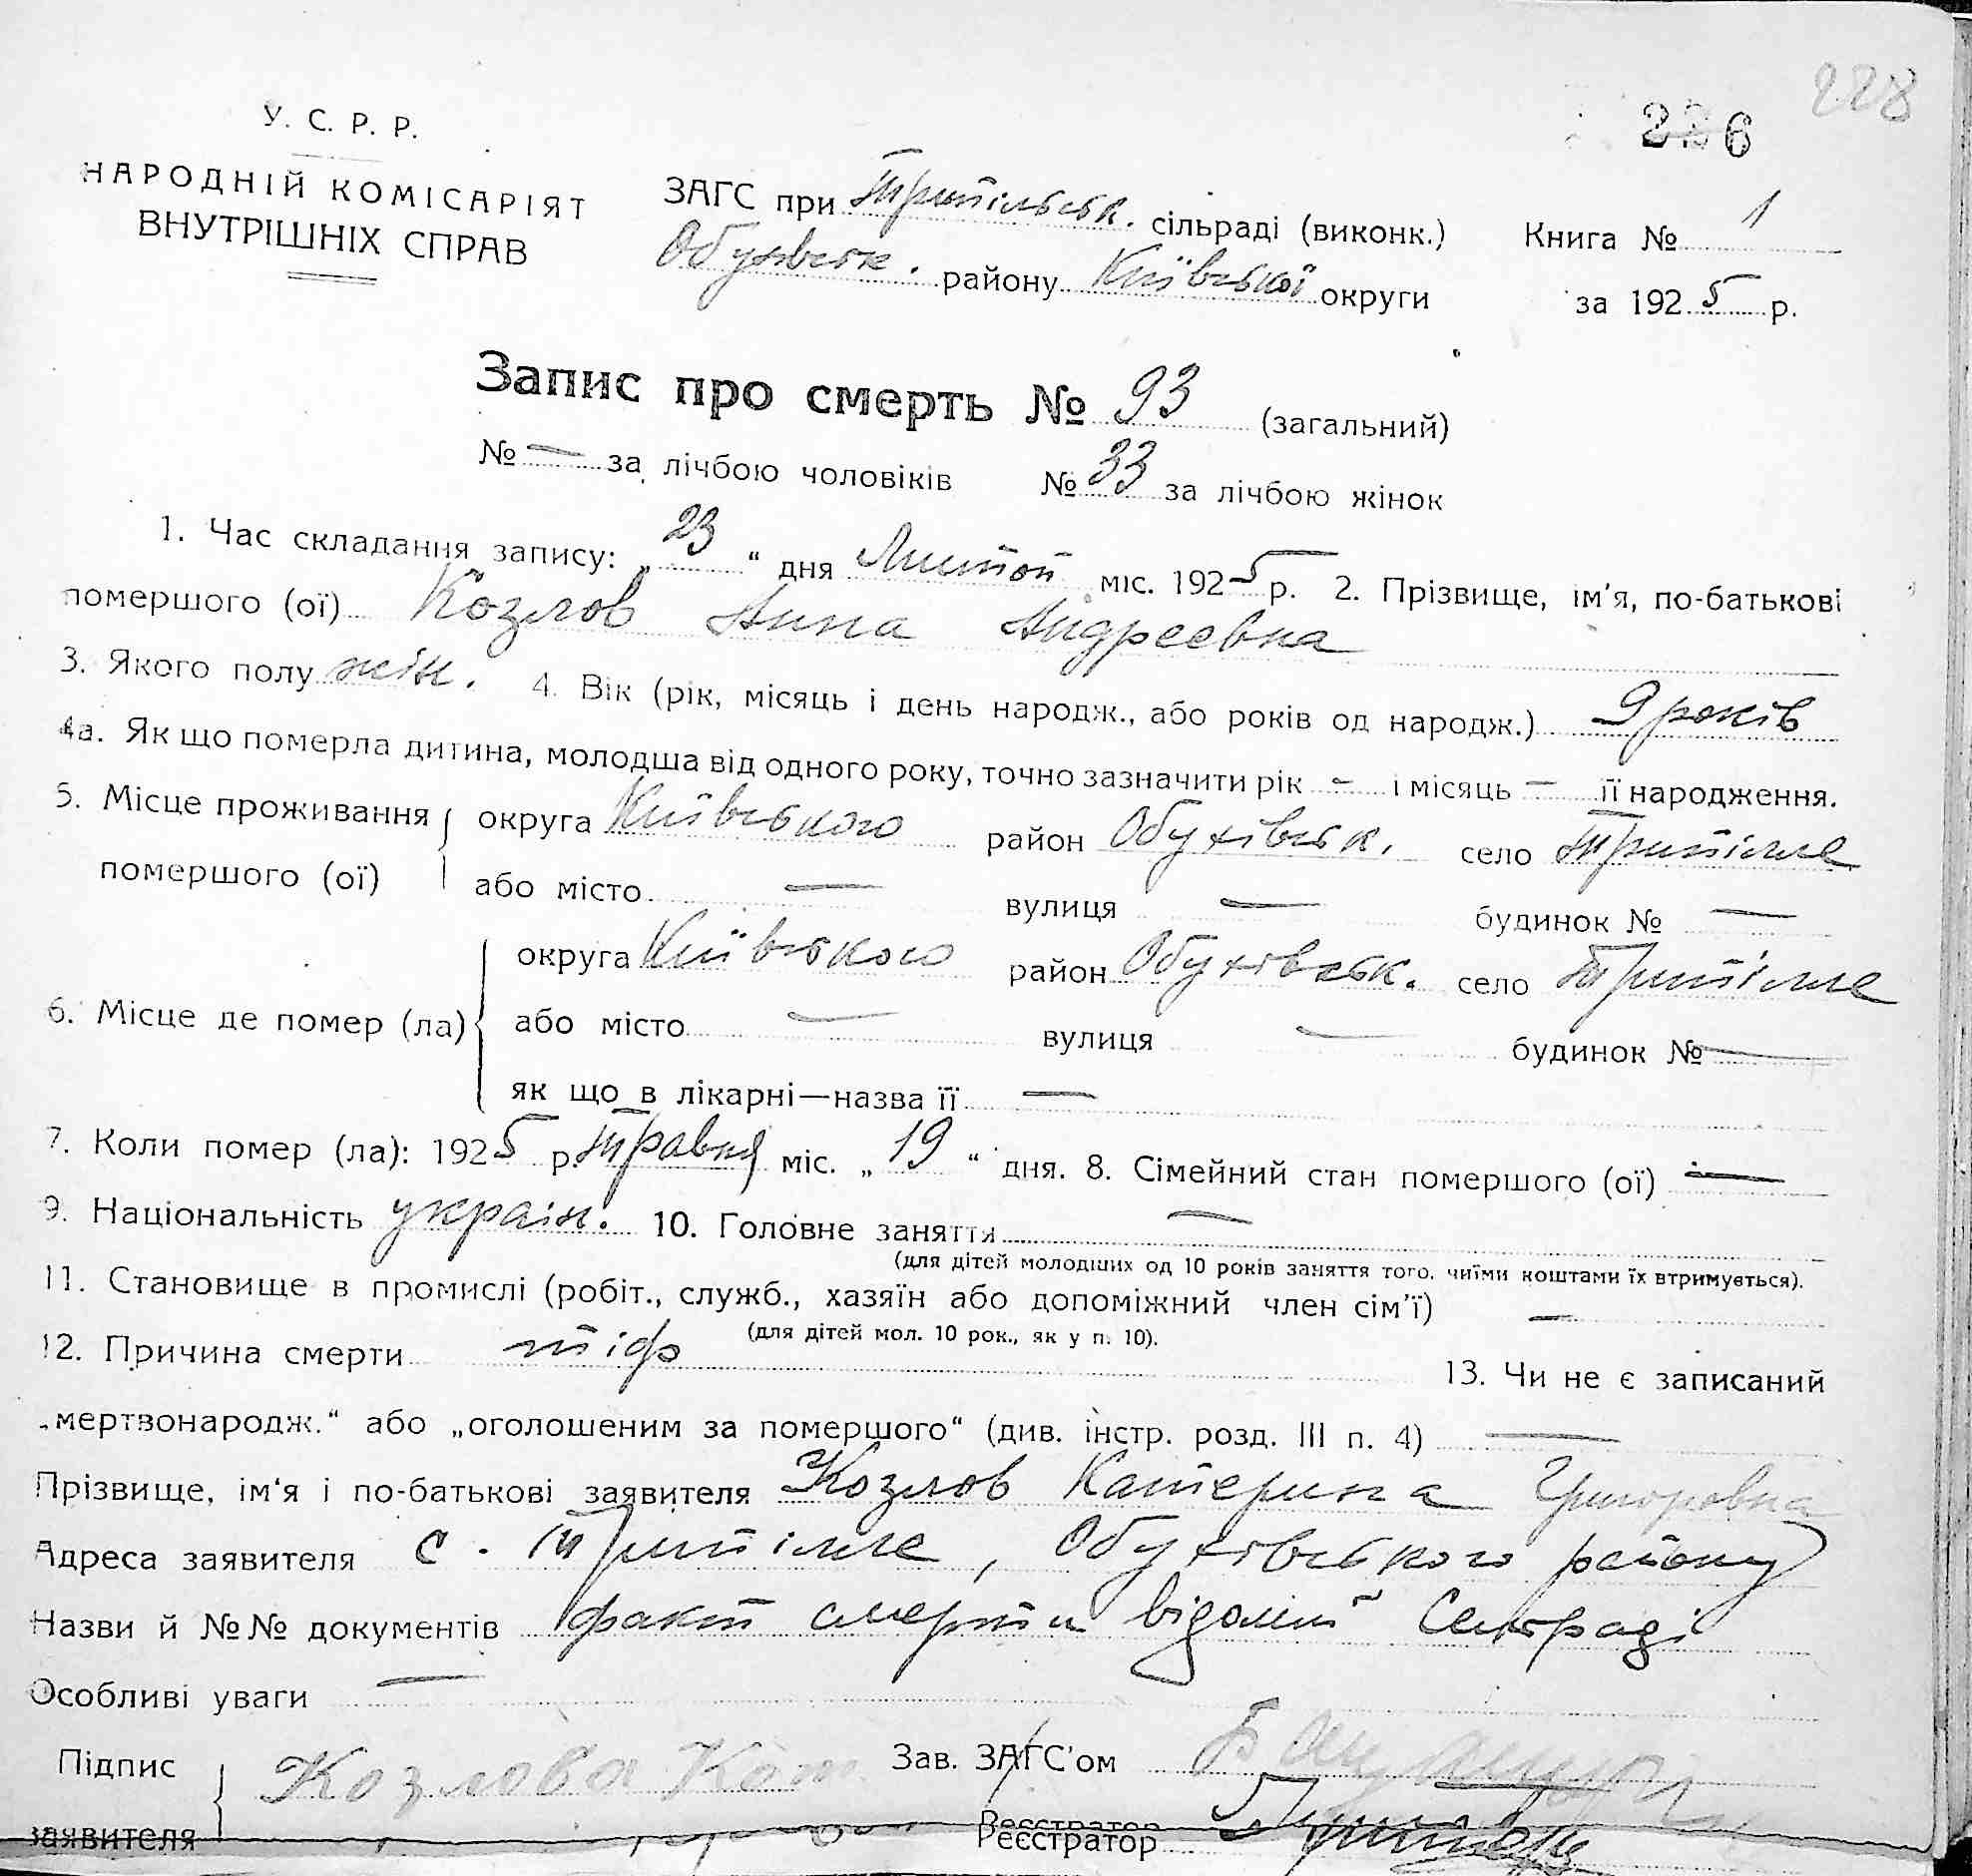 228
236
У. С. Р. Р.
НАРОДНІЙ КОМІСАРІЯТ
ВНУТРІШНІХ СПРАВ
ЗАГС при Трипільськ. сільраді (виконк.) Книга № 1
Обухівськ. району Київської округи за 1925 р.
Запис про смерть № 93 (загальний)
№ — за лічбою чоловіків № 33 за лічбою жінок
1. Час складання запису: „23“ дня Листоп міс. 1925 р. 2. Прізвище, ім’я, по-батькові
помершого (ої) Козлов Анна Андреевна
3. Якого полу жін. 4. Вік (рік, місяць і день народж., або років од народж.) 9 років
4а. Як що померла дитина, молодша від одного року, точно зазначити рік — і місяць — її народження.
5. Місце проживання округа Київського район Обухівськ. село Трипілле
помершого (ої) або місто — вулиця — будинок № —
округа Київського район Обухівськ. село Трипілле
6. Місце де помер (ла) або місто — вулиця — будинок № —
як що в лікарні—назва її —
7. Коли помер (ла): 1925 р. травня міс. „19“ дня. 8. Сімейний стан помершого (ої) —
9. Національність україн. 10. Головне заняття —
(для дітей молодших од 10 років заняття того, чиїми коштами їх втримується).
11. Становище в промислі (робіт., служб., хазяїн або допоміжний член сім’ї) —
(для дітей мол. 10 рок., як у п. 10).
12. Причина смерти тіф 13. Чи не є записаний
„мертвонародж.“ або „оголошеним за помершого“ (див. інстр. розд. III п. 4) —
Прізвище, ім‘я і по-батькові заявителя Козлов Катерина Григоровна
Адреса заявителя с. Трипілле, Обухівського району
Назви й №№ документів факт смерти відомий Сельраді
Особливі уваги —
Підпис Козлова Кат Зав. ЗАГС’ом
заявителя Реєстратор